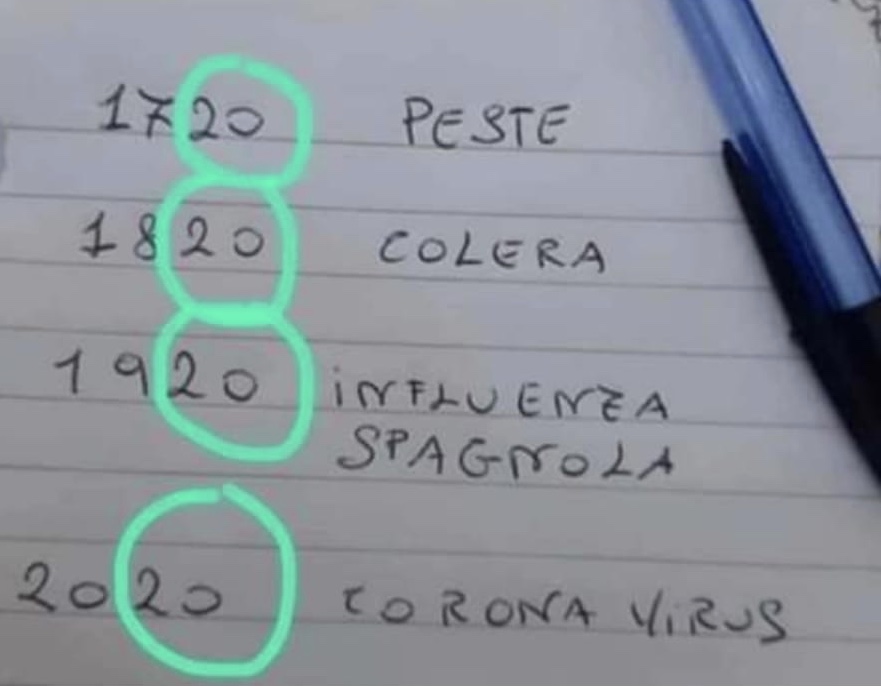 1720 PESTE
1820 COLERA
1920 iNFLUENZA
SPAGNOLA
2020 CORONA ViRUS